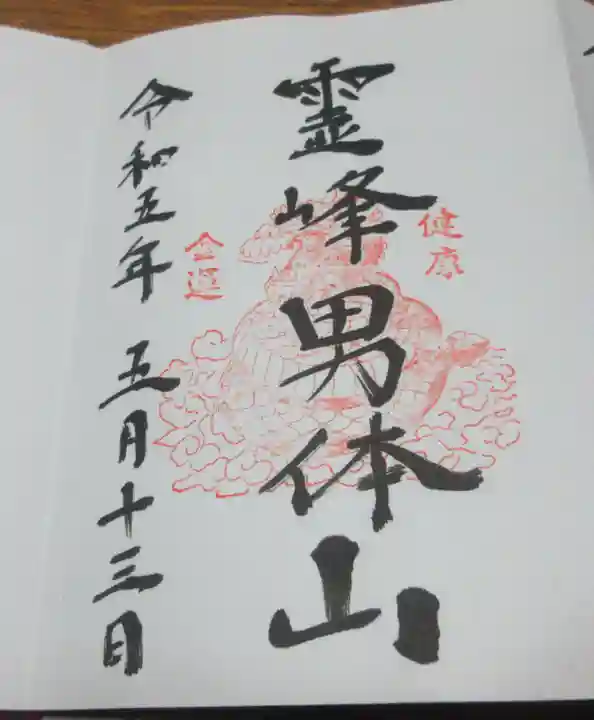 健康
霊峰男体山
金運
令和五年 五月十三日